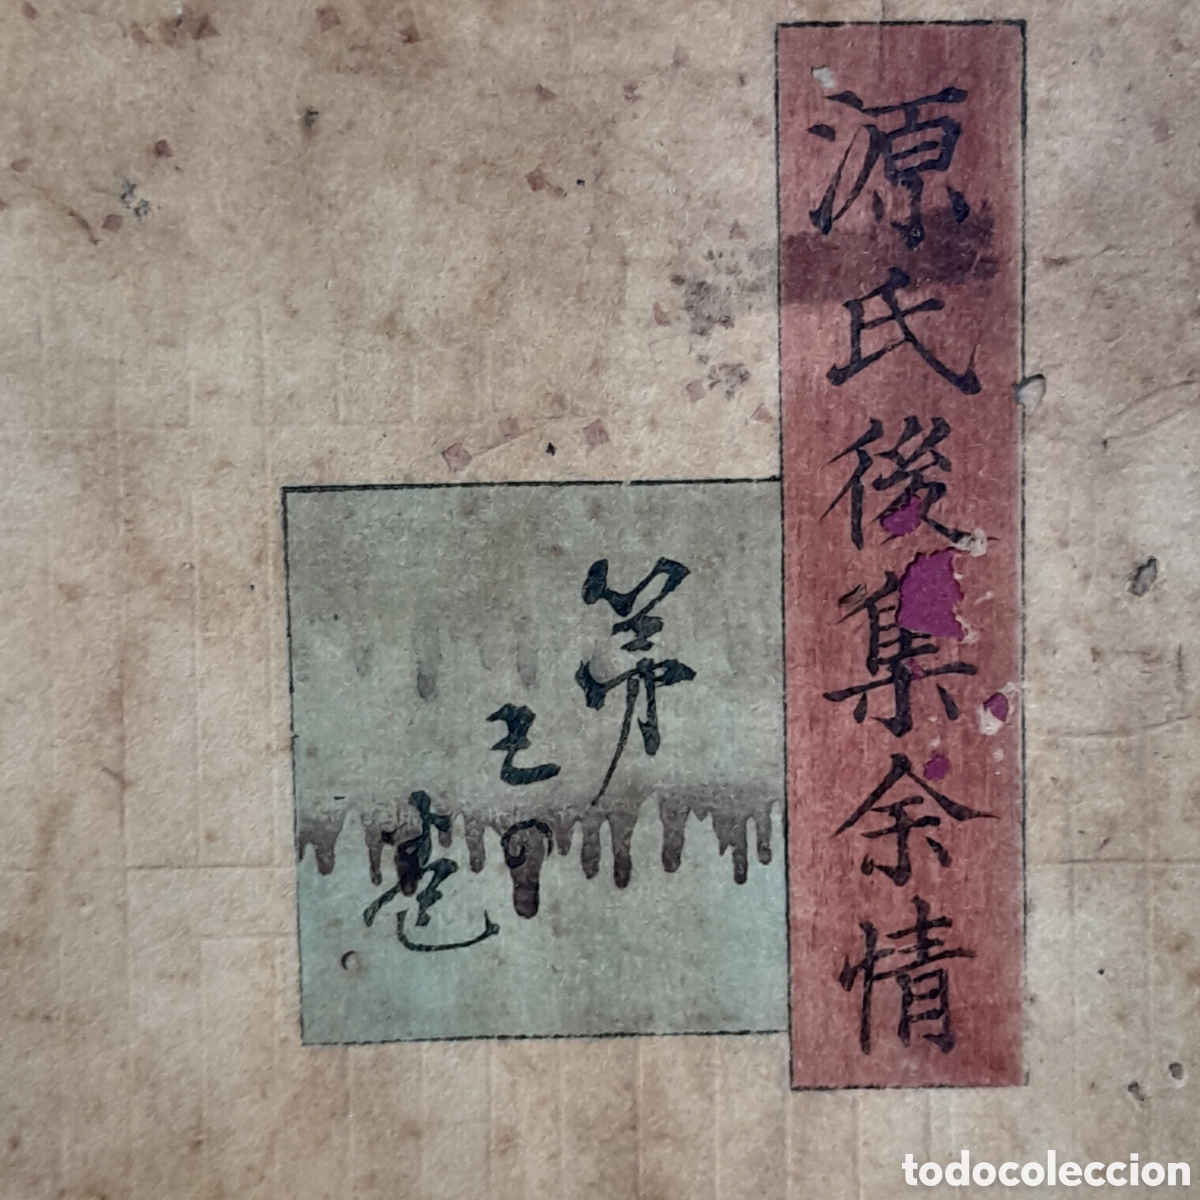 源氏後集余情
第
の
巻
todocoleccion